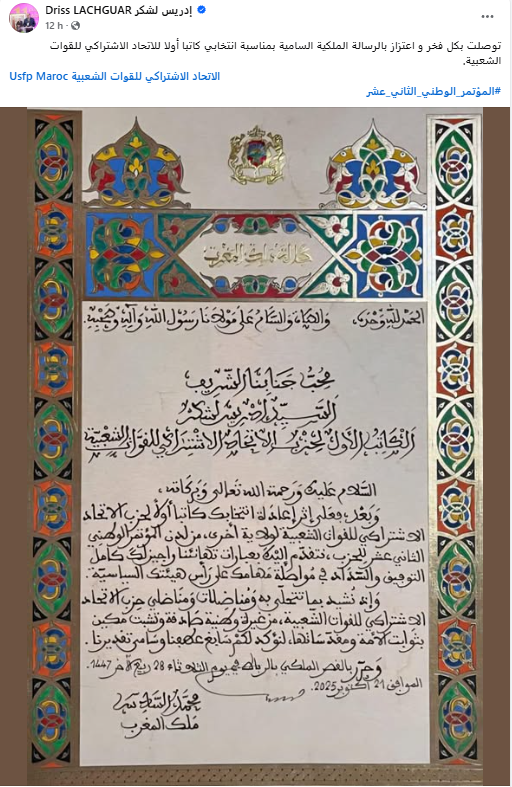 Driss LACHGUAR إدريس لشكر
12 h
توصلت بكل فخر و اعتزاز بالرسالة الملكية السامية بمناسبة انتخابي كاتبا أولا للاتحاد الاشتراكي للقوات
الشعبية.
الاتحاد الاشتراكي للقوات الشعبية Usfp Maroc
#المؤتمر_الوطني_الثاني_عشر
الحمد لله وحده، والصلاة والسلام على مولانا رسول الله وآله وصحبه.
محب جنابنا الشريف
السيد إدريس لشكر
الكاتب الأول لحزب الاتحاد الاشتراكي للقوات الشعبية
السلام عليك ورحمة الله تعالى وبركاته،
وبعد، فعلى إثر إعادة انتخابك كاتبا أولا لحزب الاتحاد
الاشتراكي للقوات الشعبية لولاية أخرى، من لدن المؤتمر الوطني
الثاني عشر للحزب، نتقدم إليك بعبارات تهانئنا راجين لك كامل
التوفيق والسداد في مواصلة مهامك على رأس هيئتك السياسية.
وإذ نشيد بما تتحلى به ومناضلات ومناضلي حزب الاتحاد
الاشتراكي للقوات الشعبية، من غيرة وطنية صادقة وتشبث مكين
بثوابت الأمة ومقدساتها، لنؤكد لكم سابغ عطفنا وسامي تقديرنا.
وحرر بالقصر الملكي بالرباط في يوم الثلاثاء 28 ربيع الآخر 1447
الموافق 21 أكتوبر 2025.
محمد السادس
ملك المغرب